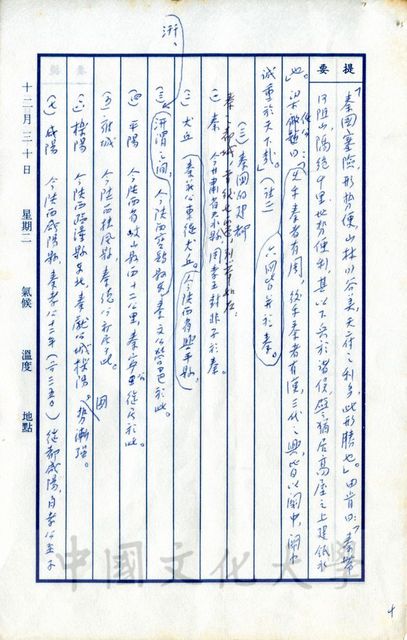 提要
秦國塞險,形勢便,山林川谷美,天材之利多,此形勝也」。田肯曰:「秦帶
河阻山,隔絕千里,地勢便利,其以下兵於諸侯,譬之猶居高屋之上建瓴水
也。」
先乎秦者有周,後乎秦者有漢,三代之興皆以關中,關中
誠重於天下哉」(註二)
六國皆并於秦。
(三)秦國的起都
(1) 秦 今甘肅省天水縣,周孝王封非子於秦。
(2) 犬丘 秦莊公東徙犬丘。(今陝西省興平縣)
(3) 汧渭之間,今陝西省郿縣,秦文公營邑於此。
汧、
(4) 平陽 今陝西省岐山縣西四十二公里,秦寧公徙居於此。
(5) 雍城 今陝西扶風縣,秦德公初居此。
(6) 櫟陽 今陝西臨潼縣東北,秦獻公城櫟陽。勢漸強。
國
(7) 咸陽 今陝西咸陽縣,秦孝公十二年(公元三五〇)徙都咸陽,自孝公至子
十二月三十日 星期二 氣候 溫度 地點
中國文化大學
4